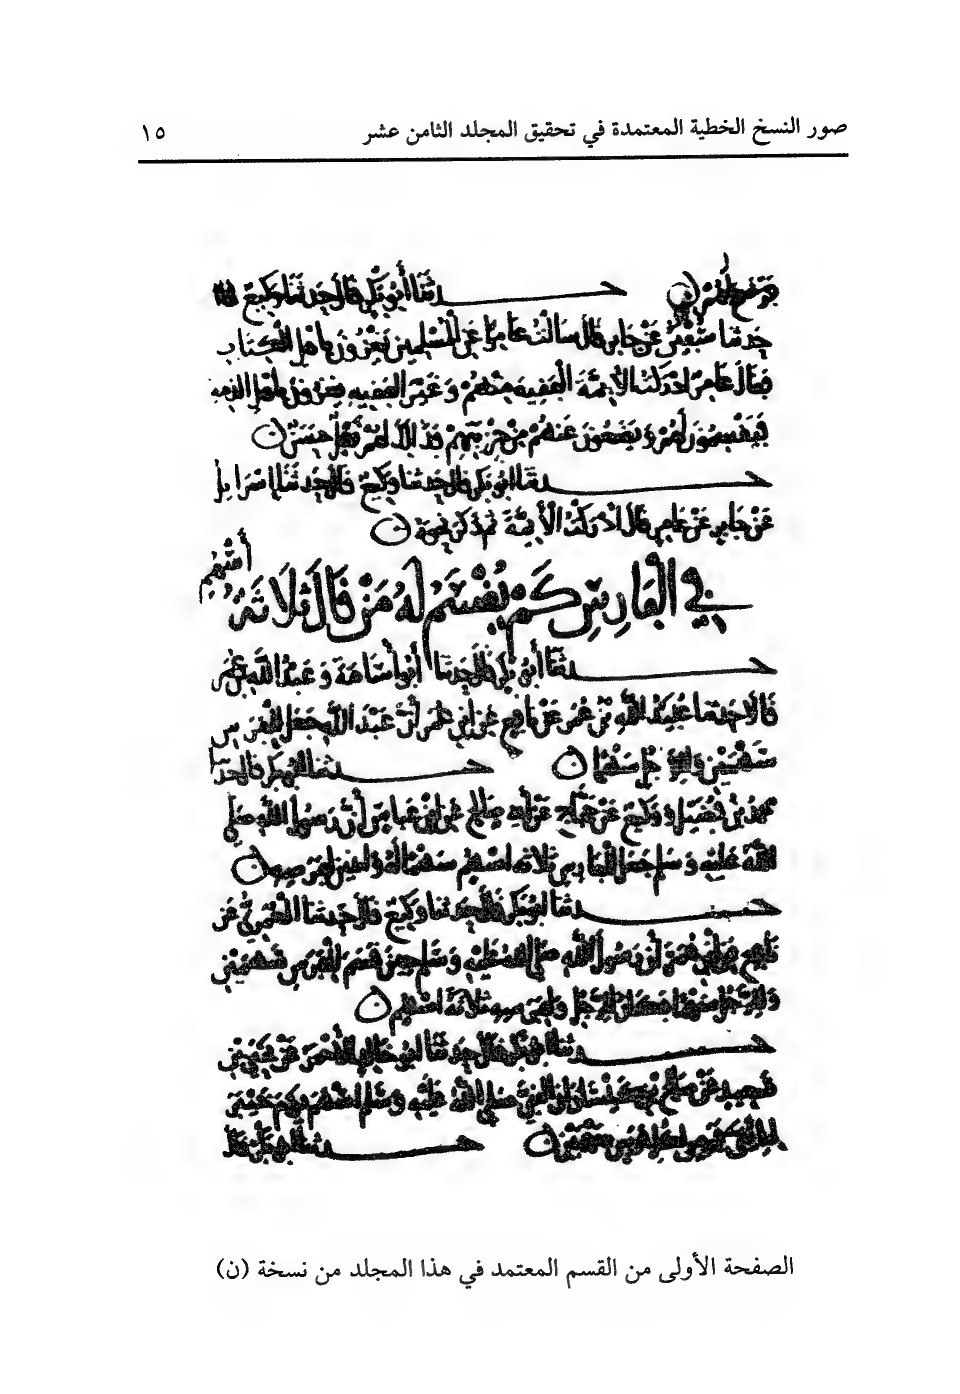 صور النسخ الخطية المعتمدة في تحقيق المجلد الثامن عشر ١٥
حدثنا أبو بكر قال حدثنا وكيع
حدثنا سفين عن جابر قال سالت عامرا عن المسلمين يغزون باهل الكتاب
فقال عامر ادركت الأيمة الفقيه منهم وغير الفقيه يغزون باهل الذمه
فيقسمون لهم ويضعون عنهم من جزيتهم فذلك لهم نفل حسن
حدثنا ابو بكر قال حدثنا وكيع قال حدثنا اسرايل
عن جابر عن عامر قال ادركت الأيمة ثم ذكر نحوه
في الفارس كم يقسم له من قال ثلاثة أسهم
حدثنا أبو بكر قال حدثنا أبو أسامة وعبد الله بن نمير
قالا حدثنا عبيد الله بن عمر عن نافع عن ابن عمر أن رسول الله جعل للفرس
سهمين وللرجل سهما حدثنا ابو بكر قال حدثنا
محمد بن فضيل ووكيع عن حجاج عن أبي صالح عن ابن عباس أن رسول الله صلى
الله عليه وسلم جعل للفارس ثلاثة اسهم سهما له واثنين لفرسه
حدثنا ابو بكر قال حدثنا وكيع قال حدثنا العمري عن
نافع عن ابن عمر أن رسول الله صلى الله عليه وسلم قسم للفرس سهمين
وللرجل سهما فكان للرجل ولفرسه ثلاثة اسهم
حدثنا ابو بكر قال حدثنا ابو خالد الأحمر عن يحيى بن
سعيد عن صالح بن كيسان ان النبي صلى الله عليه وسلم اسهم يوم خيبر
لمائتي فرس لكل فرس سهمين حدثنا أبو بكر قال
الصفحة الأولى من القسم المعتمد في هذا المجلد من نسخة (ن)